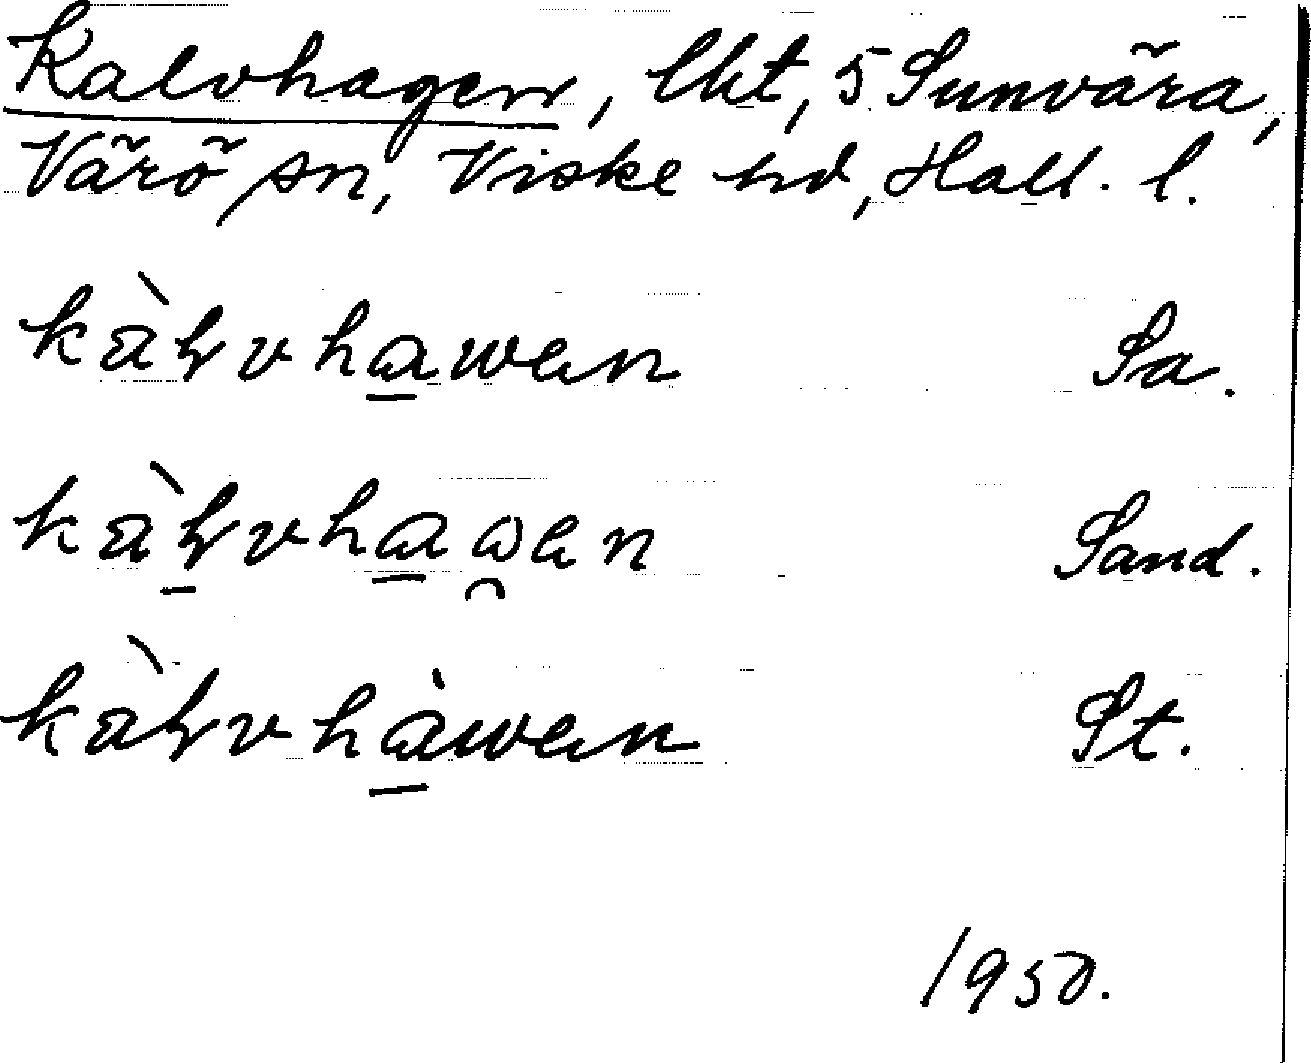 Kalvhagen, lht, 5 Sunvära,
Värö sn, Viske hd, Hall. l.
kàlvhawen Sa.
kàlvhawen Sand.
kàlvhàwen St.
1950.